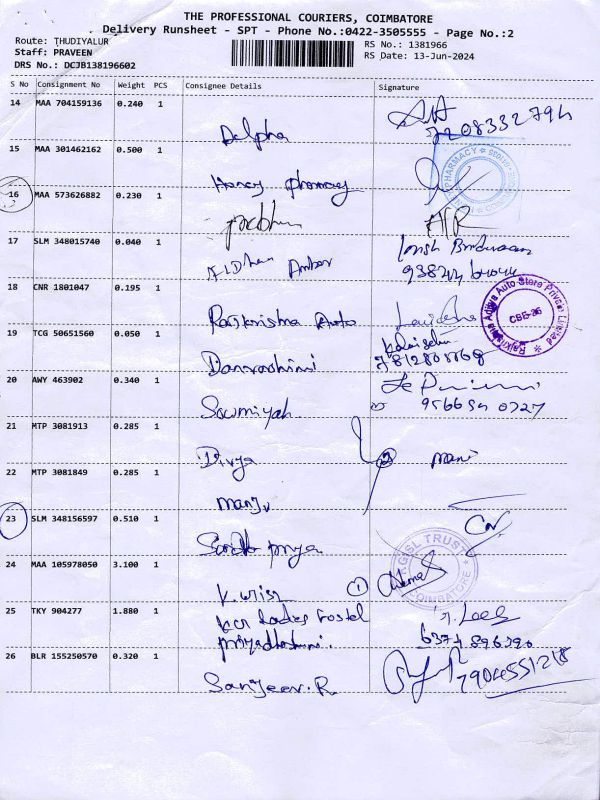 THE PROFESSIONAL COURIERS, COIMBATORE
Delivery Runsheet - SPT - Phone No.:0422-3505555 - Page No.:2
Route: THUDIYALUR
RS No.: 1381966
Staff: PRAVEEN
RS Date: 13-Jun-2024
DRS No.: DCJB138196602
S No Consignment No Weight PCS Consignee Details Signature
14 MAA 704159136 0.240 1
Delpha
7208332794
15 MAA 301462162 0.500 1
PHARMACY
Honey Pharmacy
16 MAA 573626882 0.230 1
Prabhu
17 SLM 348015740 0.040 1
Ambar
18 CNR 1801047 0.195 1
Rajkrishna Auto
Rajkrishna Aditya Auto Store Private Limited
CBE-36
19 TCG 50651560 0.050 1
Kalaiselvi
Dharshini
20 AWY 463902 0.340 1
Sowmiyah
21 MTP 3081913 0.285 1
Divya
2
mani
22 MTP 3081849 0.285 1
manju
23 SLM 348156597 0.510 1
priya
24 MAA 105978050 3.100 1
KGISL TRUST
COIMBATORE
1
25 TKY 904277 1.880 1
KCR Ladies Hostel
Priyadharshini.
6374896390
26 BLR 155250570 0.320 1
Sanjeev.R.
7904551218